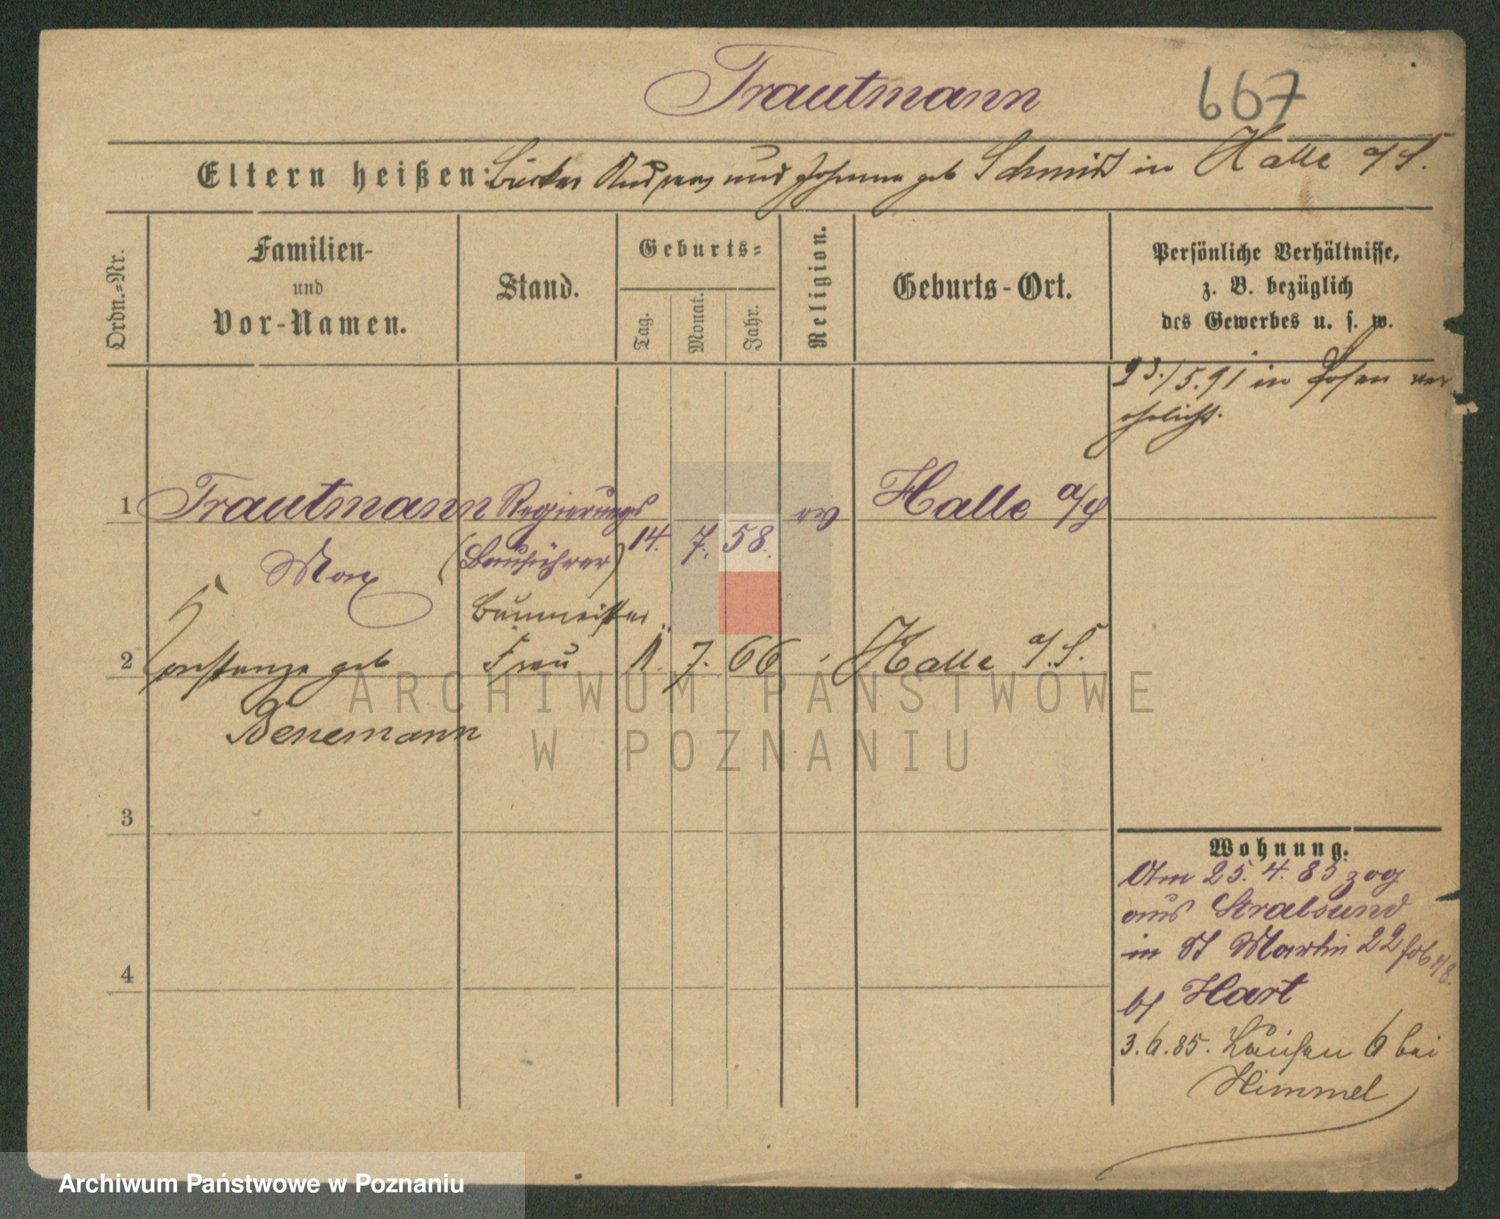 Trautmann
667
Eltern heißen: Bäcker Andreas und Johanna geb Schmidt in Halle a/S.
Ordn.-Nr.
Familien-
und
Vor-Namen.
Stand.
Geburts-
Tag.
Monat.
Jahr.
Religion.
Geburts-Ort.
Persönliche Verhältnisse,
z. B. bezüglich
des Gewerbes u. s. w.
23./5.91 in Posen ver
ehelicht.
1 Trautmann Regierungs 14. 7. 58. ev Halle a/S
Max (Bauführer)
Baumeister
2 Constanze geb Frau 1. 7. 66 Halle a/S.
Benemann
3
4
Wohnung.
Am 25.4.85 zog
aus Stralsund
in St Martin 22
b/ Hart
3.6.85. Louisen 6 bei
Himmel
ARCHIWUM PAŃSTWOWE
W POZNANIU
Archiwum Państwowe w Poznaniu